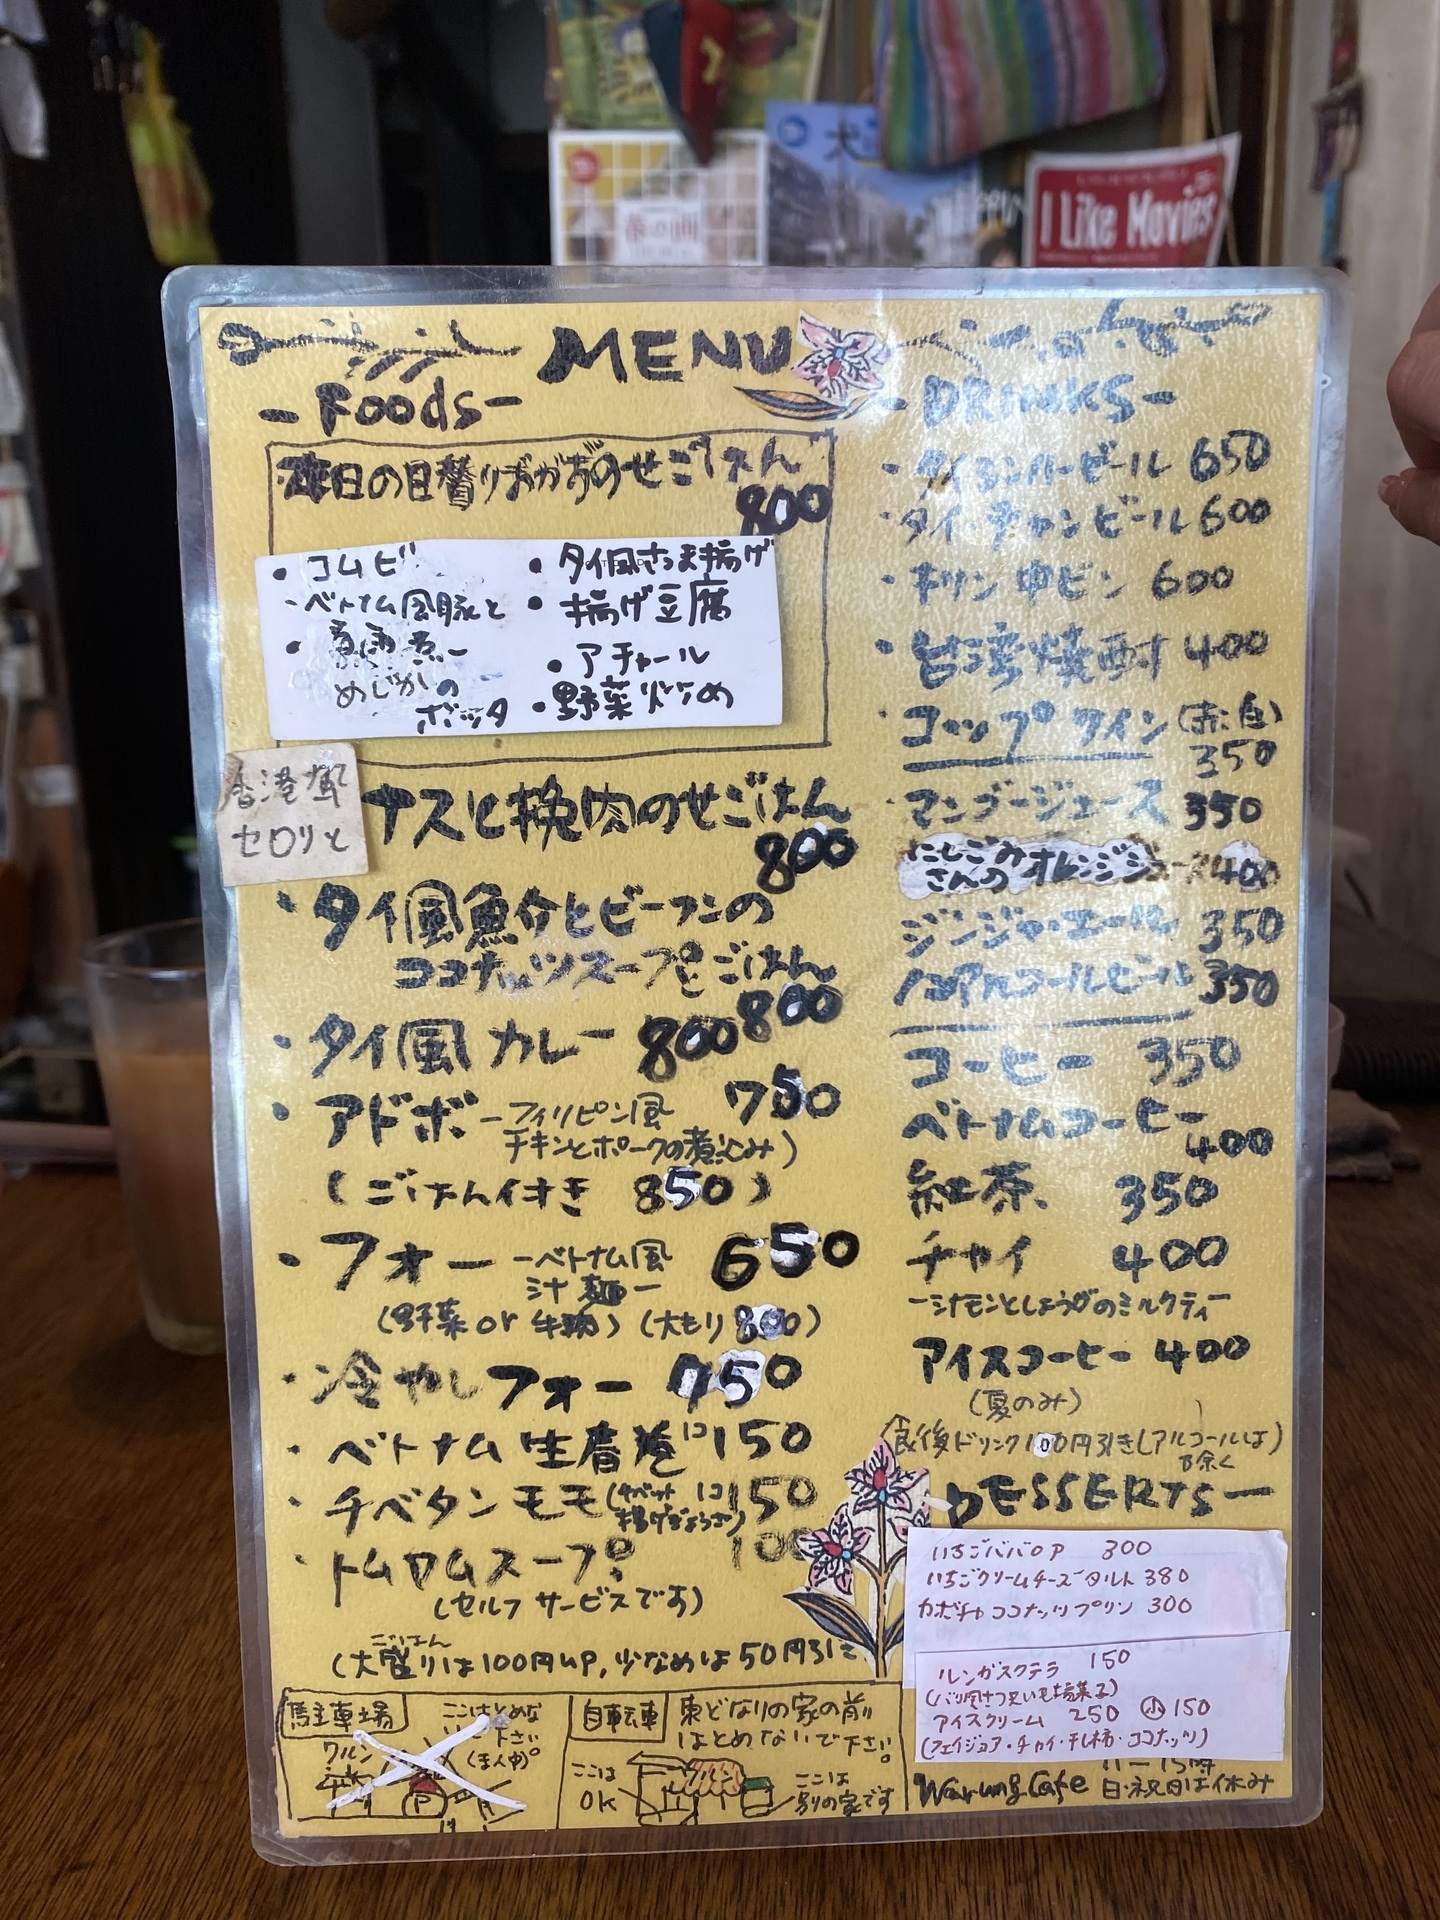 I Like Movies
MENU
-Foods-
昨日の日替りおかずのせごはん
800
・コムビ
・ベトナム風豚と
めじかの
ポッタ
・タイ風さつま揚げ
・揚げ豆腐
・アチャール
・野菜炒め
香港風
セロリと
ナスと挽肉のせごはん
800
・タイ風魚介とビーフンの
ココナッツスープとごはん
800
・タイ風カレー 800
・アドボ -フィリピン風 750
チキンとポークの煮込み)
(ごはん付き 850)
・フォー -ベトナム風 650
汁麺-
(野菜 or 牛肉) (大もり 800)
・冷やしフォー 750
・ベトナム生春巻 1コ 150
・チベタンモモ (チベット 1コ 150
揚げぎょうざ)
・トムヤムスープ 100
(セルフサービスです)
ごはん
(大盛りは100円UP, 少なめは50円引に
駐車場
ワルン
ここはとめな
下さい
(まん中)。
P
自転車
東どなりの家の前
はとめないで下さい。
ここは
OK
ワルン
ここは
別の家です
DRINKS-
・タイ シンハービール 650
・タイ・チャンビール 600
・キリン 中ビン 600
・台湾焼酎 400
・コップワイン (赤・白)
350
マンゴージュース 350
にしごみ
さんのオレンジジュース 400
ジンジャーエール 350
ノンアルコールビール 350
コーヒー 350
ベトナムコーヒー
400
紅茶 350
チャイ 400
-シナモンとしょうがのミルクティー
アイスコーヒー 400
(夏のみ)
食後ドリンク100円引き(アルコールは)
除く
DESSERTS-
いちごババロア 300
いちごクリームチーズタルト 380
カボチャココナッツプリン 300
ルンガスクテラ 150
(バリ風さつまいも揚菓子)
アイスクリーム 250 小 150
(フェイジョア・チャイ・干し柿・ココナッツ)
11-15時
Warung Cafe 日・祝日は休み